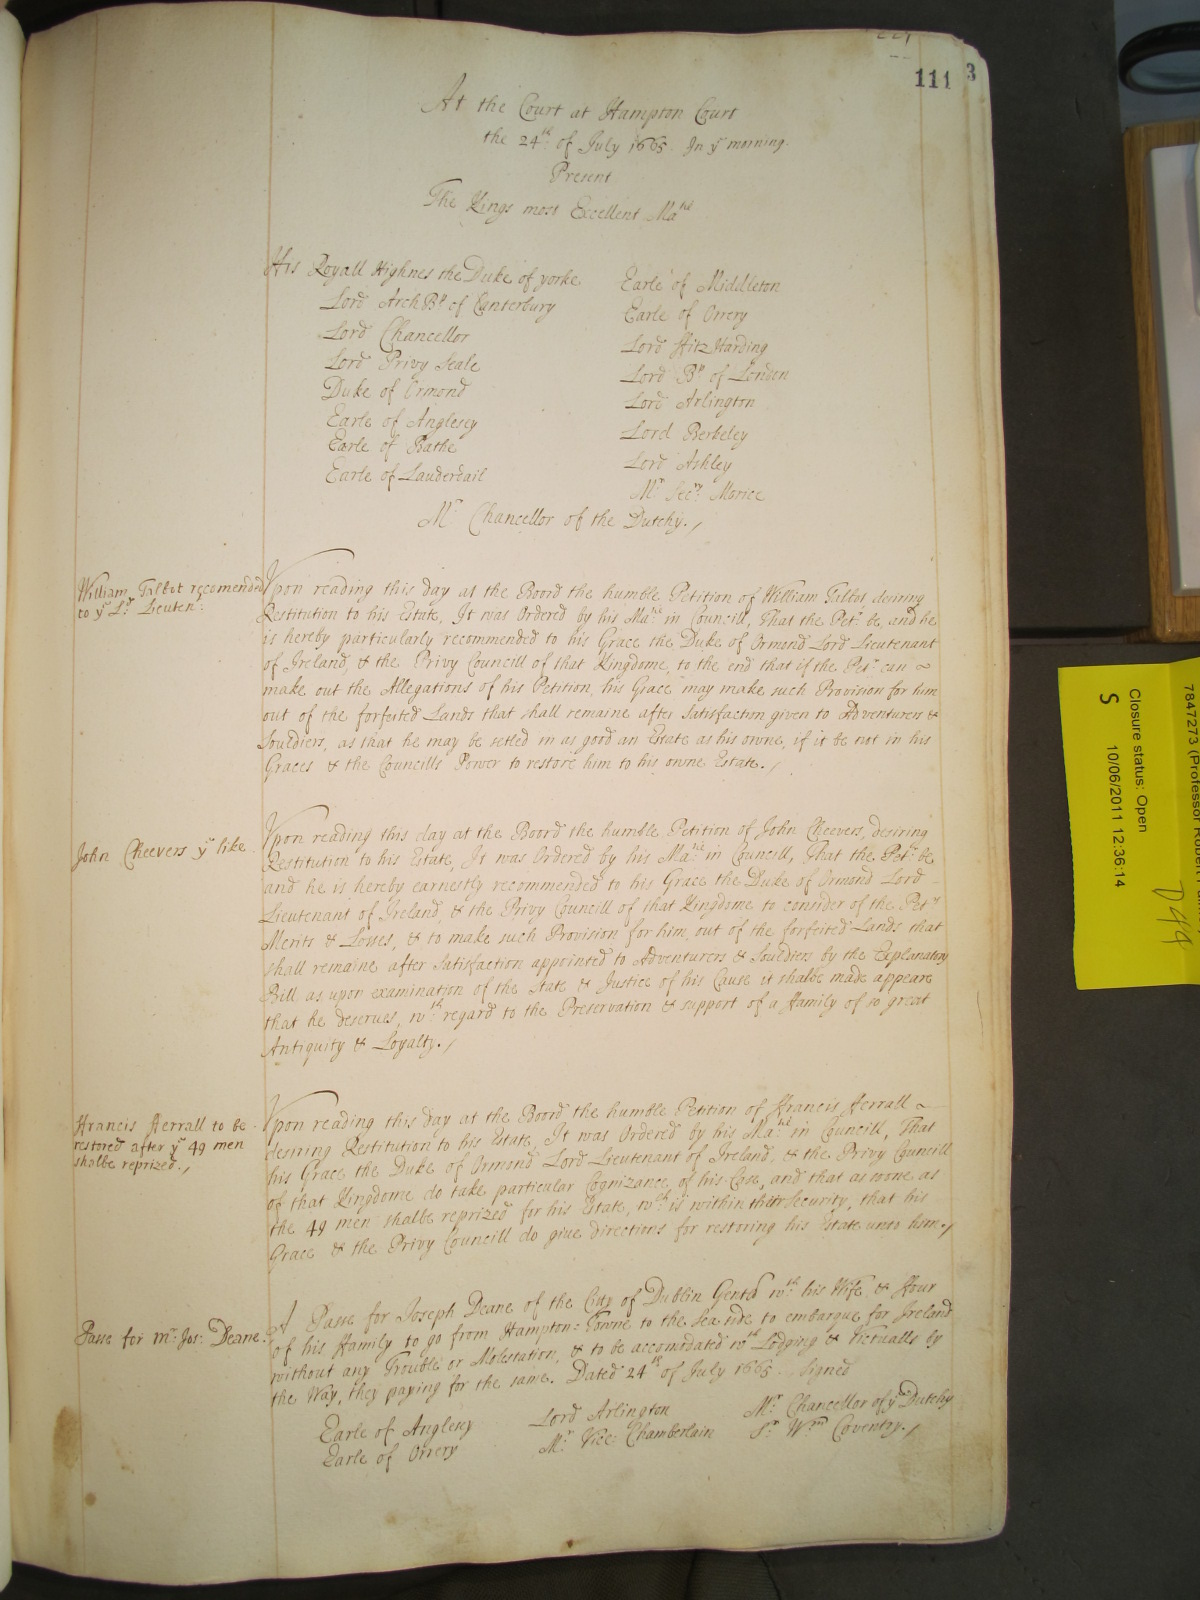 111
3
At the Court at Hampton Court
the 24th of July 1665. In ye morning.
Present
The Kings most Excellent Matie
His Royall Highnes the Duke of yorke
Lord ArchBp of Canterbury
Lord Chancellor
Lord Privy Seale
Duke of Ormond
Earle of Anglesey
Earle of Bathe
Earle of Lauderdail
Earle of Middleton
Earle of Orrery
Lord FitzHarding
Lord Bp of London
Lord Arlington
Lord Berkeley
Lord Ashley
Mr Secry Morice
Mr Chancellor of the Dutchy./
William Talbot recomended
to ye Ld Lieutent:
Upon reading this day at the Board the humble Petition of William Talbot desiring
Restitution to his Estate, It was Ordered by his Matie in Councill, That the Petr be, and he
is hereby particularly recommended to his Grace the Duke of Ormond Lord Lieutenant
of Ireland, & the Privy Councill of that Kingdome, to the end that if the Petr can ~
make out the Allegations of his Petition, his Grace may make such Provision for him
out of the forfeited Lands that shall remaine after Satisfaction given to Adventurers &
Souldiers, as that he may be setled in as good an Estate as his owne, if it be not in his
Graces & the Councills Power to restore him to his owne Estate./
John Cheevers ye like
Upon reading this day at the Board the humble Petition of John Cheevers, desiring
Restitution to his Estate, It was Ordered by his Matie in Councill, That the Petr be
and he is hereby earnestly recommended to his Grace the Duke of Ormond Lord
Lieutenant of Ireland, & the Privy Councill of that Kingdome to consider of the Petrs
Merits & Losses, & to make such Provision for him, out of the forfeited Lands that
shall remaine after Satisfaction appointed to Adventurers & Souldiers by the Explanatory
Bill as upon examination of the State & Justice of his Cause it shalbe made appeare
that he deserves, wth regard to the Preservation & support of a Family of so great
Antiquity & Loyalty./
Francis Ferrall to be
restored after ye 49 men
shalbe reprized./
Upon reading this day at the Board the humble Petition of Francis Ferrall ~
desiring Restitution to his Estate, It was Ordered by his Matie in Councill, That
his Grace the Duke of Ormond Lord Lieutenant of Ireland, & the Privy Councill
of that Kingdome do take particular Cognizance of his Case, and that as soone as
the 49 men shalbe reprized for his Estate, wch is within their Security, that his
Grace & the Privy Councill do give directions for restoring his Estate unto him./
Passe for mr Jos: Deane.
A Passe for Joseph Deane of the Citty of Dublin Gent wth his Wife & ffour
of his Family to go from Hampton=Towne to the Sea side to embarque for Ireland
without any Trouble or Molestation, & to be accomodated wth Lodging & Victualls by
the Way, they paying for the same. Dated 24th of July 1665. Signed
Earle of Anglesey
Earle of Orrery
Lord Arlington
Mr Vice-Chamberlain
Mr Chancellor of ye Dutchy
Sr Wm Coventry./
7847273 (Professor Robert
Closure status: Open
10/06/2011 12:36:14
S